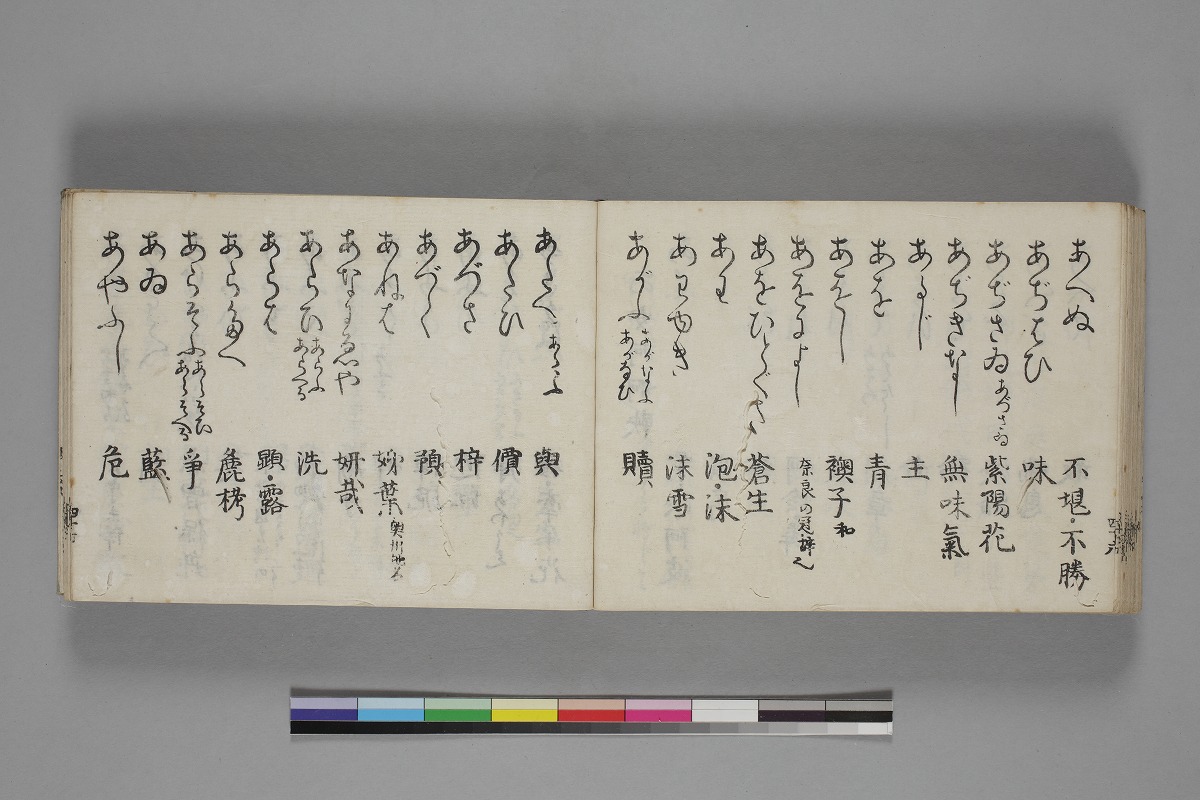 あへぬ 不堪・不勝
あぢはひ 味
あぢさゐ あづさゐ 紫陽花
あぢきなし 無味氣
あるじ 主
あを 青
あをし 襖子 和
あをによし 奈良の冠辞也
あをひとくさ 蒼生
あわ 泡・沫
あわゆき 沫雪
あがふ あがなふ あがなひ 贖
あたへ あたふ 與
あたひ 價
あづさ 梓
あづく 預
あねは 姉葉
あなにゑや 妍哉
あらひ あらふ あらへる 洗
あらは 顕・露
あらたへ 麁栲
あらそふ あらそひ あらそへる 爭
あゐ 藍
あやふし 危